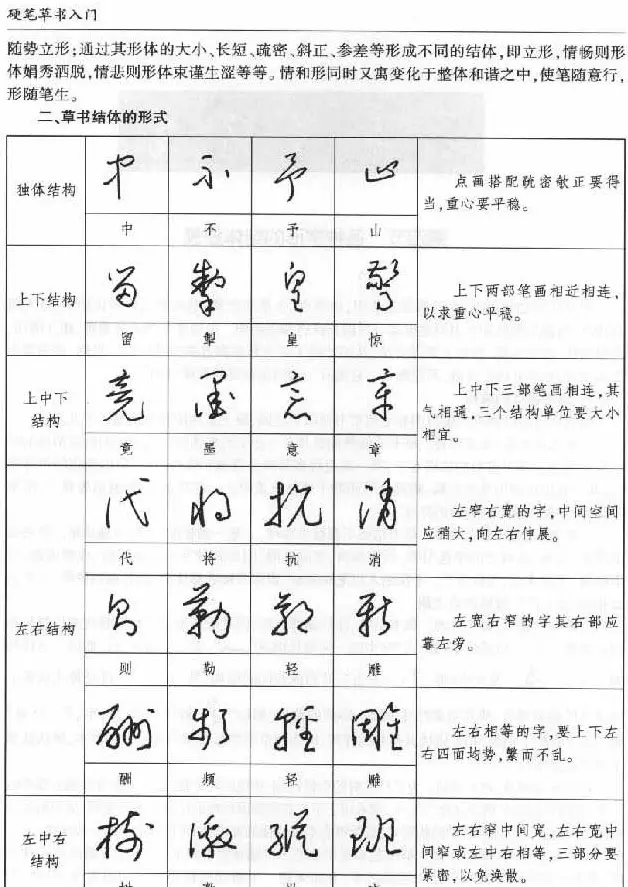 硬笔草书入门
随势立形;通过其形体的大小、长短、疏密、斜正、参差等形成不同的结体,即立形,情畅则形
体娟秀洒脱,情悲则形体束谨生涩等等。情和形同时又寓变化于整体和谐之中,使笔随意行,
形随笔生。
二、草书结体的形式
独体结构
中 不 予 山
点画搭配疏密欹正要得
当,重心要平稳。
上下结构
留 犁 皇 惊
上下两部笔画相近相连,
以求重心平稳。
上中下
结构
竟 墨 意 章
上中下三部笔画相连,其
气相通,三个结构单位要大小
相宜。
左右结构
代 将 抗 消
左窄右宽的字,中间空间
应稍大,向左右伸展。
则 勒 轻 雕
左宽右窄的字其右部应
靠左旁。
酬 频 轻 雕
左右相等的字,要上下左
右四面均势,繁而不乱。
左中右
结构
左右窄中间宽,左右宽中
间窄或左中右相等,三部分要
紧密,以免涣散。